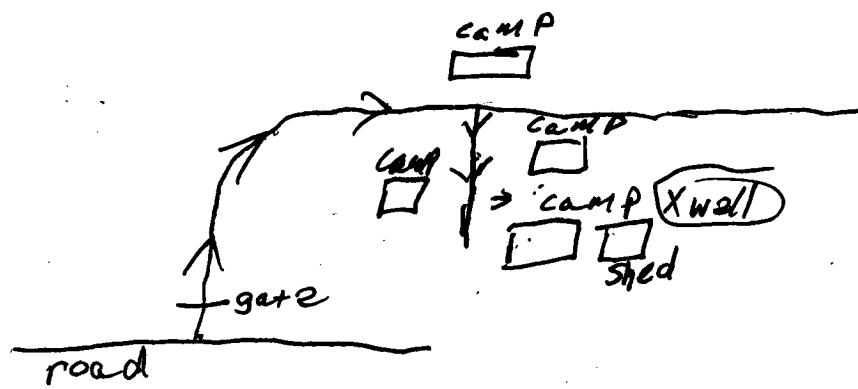 camp
camp
camp
camp
X well
shed
gate
road